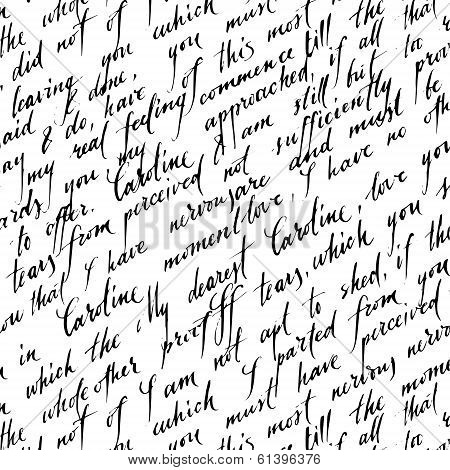 the whole of which must
did not of you must
leaving you you this most now
said & done, of till the
aid & do, have, feeling commence if all too
ay my real my approached, but prov
ards you Caroline I am still
to offer. perceived not sufficiently be
tears from nervous are and must othe
ow that I have moment love, I have no
Caroline My dearest Caroline, love you
in which the proof If tears, which you s
the whole other not apt to shed, if the
did not of I am I parted from you
of which must have perceived
you this most nervous nervous
till the moment
if all that